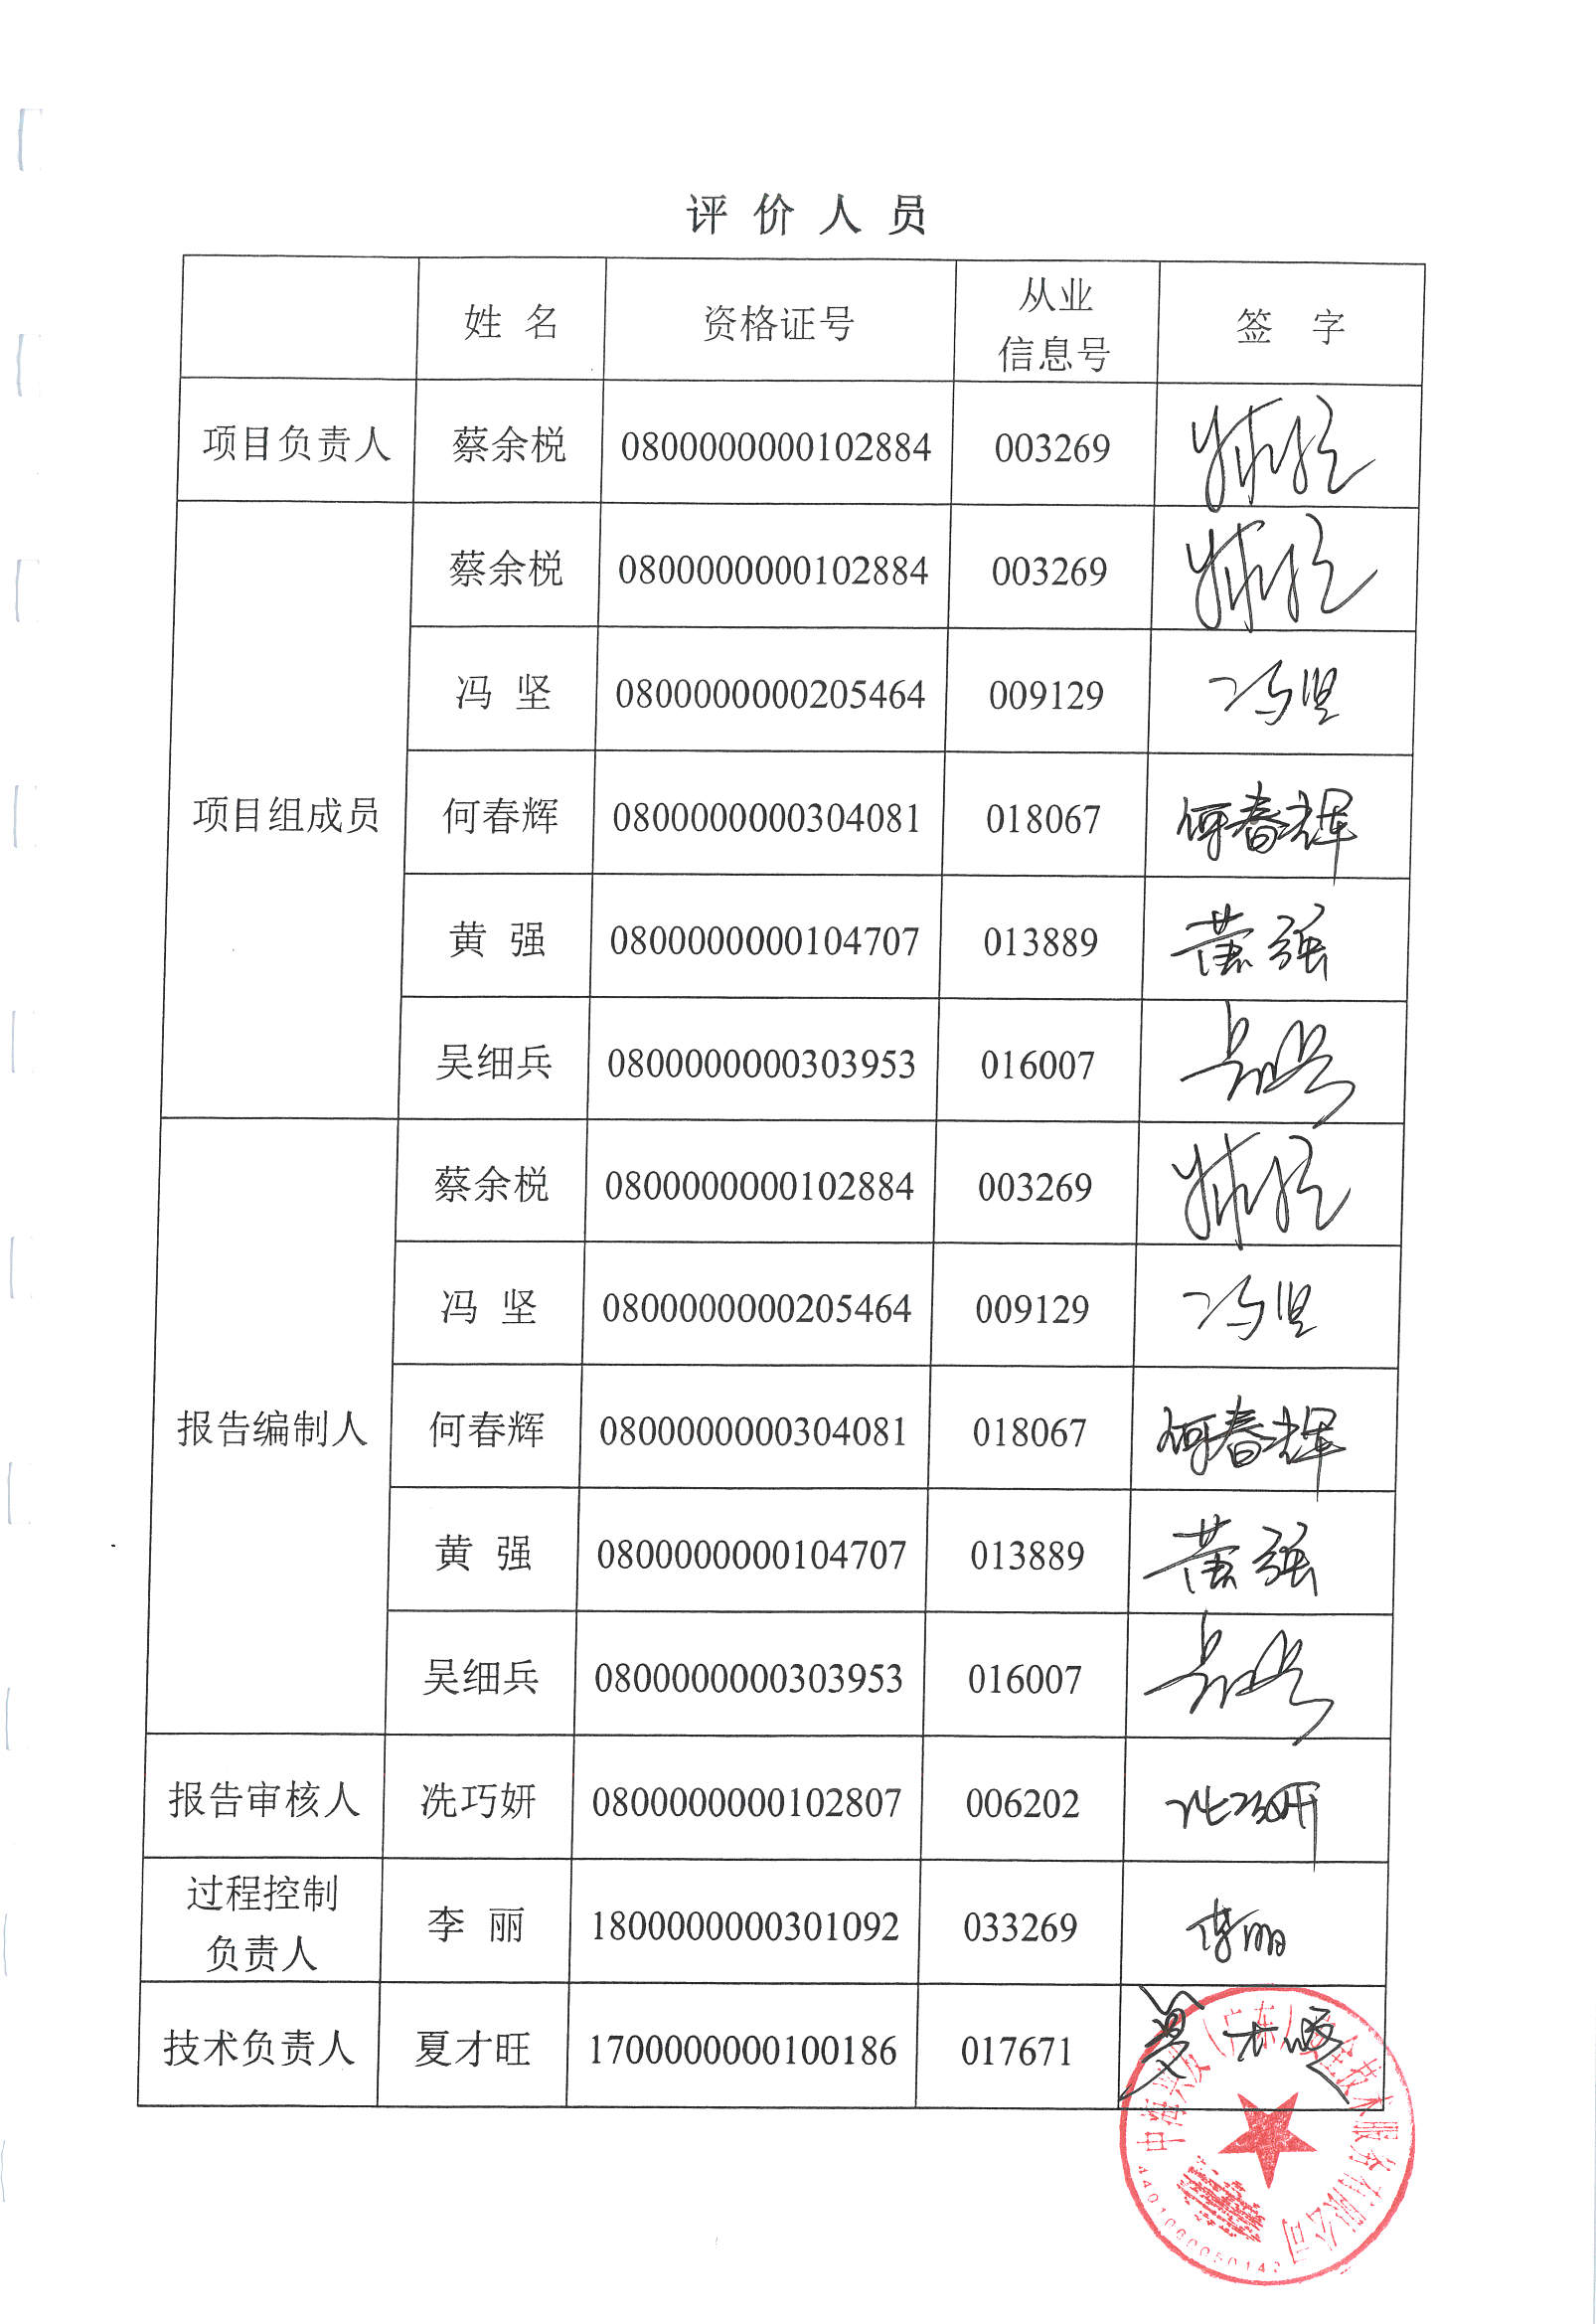 评价人员
姓 名 资格证号 从业信息号 签 字
项目负责人 蔡余棁 0800000000102884 003269
项目组成员 蔡余棁 0800000000102884 003269
冯 坚 0800000000205464 009129 冯坚
何春辉 0800000000304081 018067 何春辉
黄 强 0800000000104707 013889 黄强
吴细兵 0800000000303953 016007
报告编制人 蔡余棁 0800000000102884 003269
冯 坚 0800000000205464 009129 冯坚
何春辉 0800000000304081 018067 何春辉
黄 强 0800000000104707 013889 黄强
吴细兵 0800000000303953 016007
报告审核人 冼巧妍 0800000000102807 006202 冼巧妍
过程控制
负责人 李 丽 1800000000301092 033269 李丽
技术负责人 夏才旺 1700000000100186 017671 夏才旺
（广东）安全技术服务有限公司